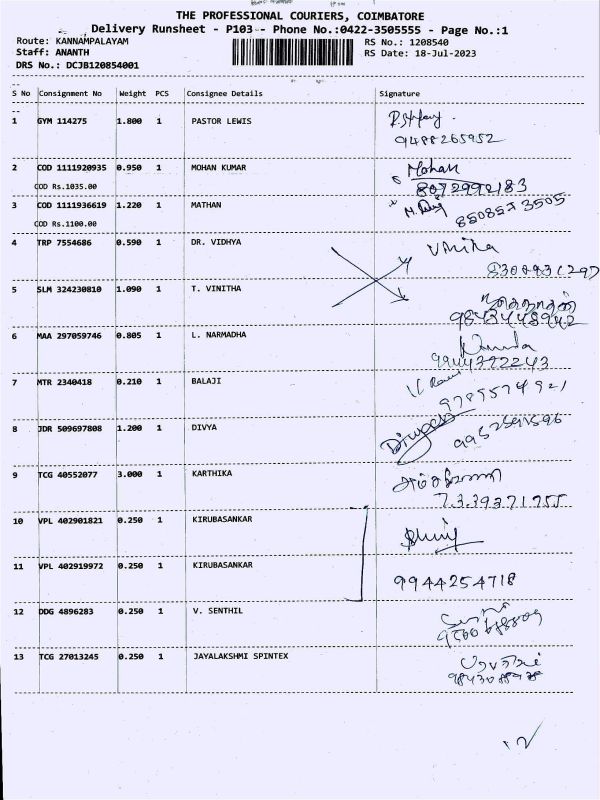 THE PROFESSIONAL COURIERS, COIMBATORE
Delivery Runsheet - P103 - Phone No.:0422-3505555 - Page No.:1
Route: KANNAMPALAYAM RS No.: 1208540
Staff: ANANTH RS Date: 18-Jul-2023
DRS No.: DCJB120854001
S No Consignment No Weight PCS Consignee Details Signature
1 GYM 114275 1.800 1 PASTOR LEWIS
9488265952
2 COD 1111920935 0.950 1 MOHAN KUMAR Mohan
COD Rs.1035.00 8072992183
3 COD 1111936619 1.220 1 MATHAN
COD Rs.1100.00
4 TRP 7554686 0.590 1 DR. VIDHYA
5 SLM 324230810 1.090 1 T. VINITHA
9843448942
6 MAA 297059746 0.805 1 L. NARMADHA
9944392243
7 MTR 2340418 0.210 1 BALAJI
9789574921
8 JDR 509697808 1.200 1 DIVYA
9 TCG 40552077 3.000 1 KARTHIKA
10 VPL 402901821 0.250 1 KIRUBASANKAR
11 VPL 402919972 0.250 1 KIRUBASANKAR
9944254718
12 DDG 4896283 0.250 1 V. SENTHIL
13 TCG 27013245 0.250 1 JAYALAKSHMI SPINTEX